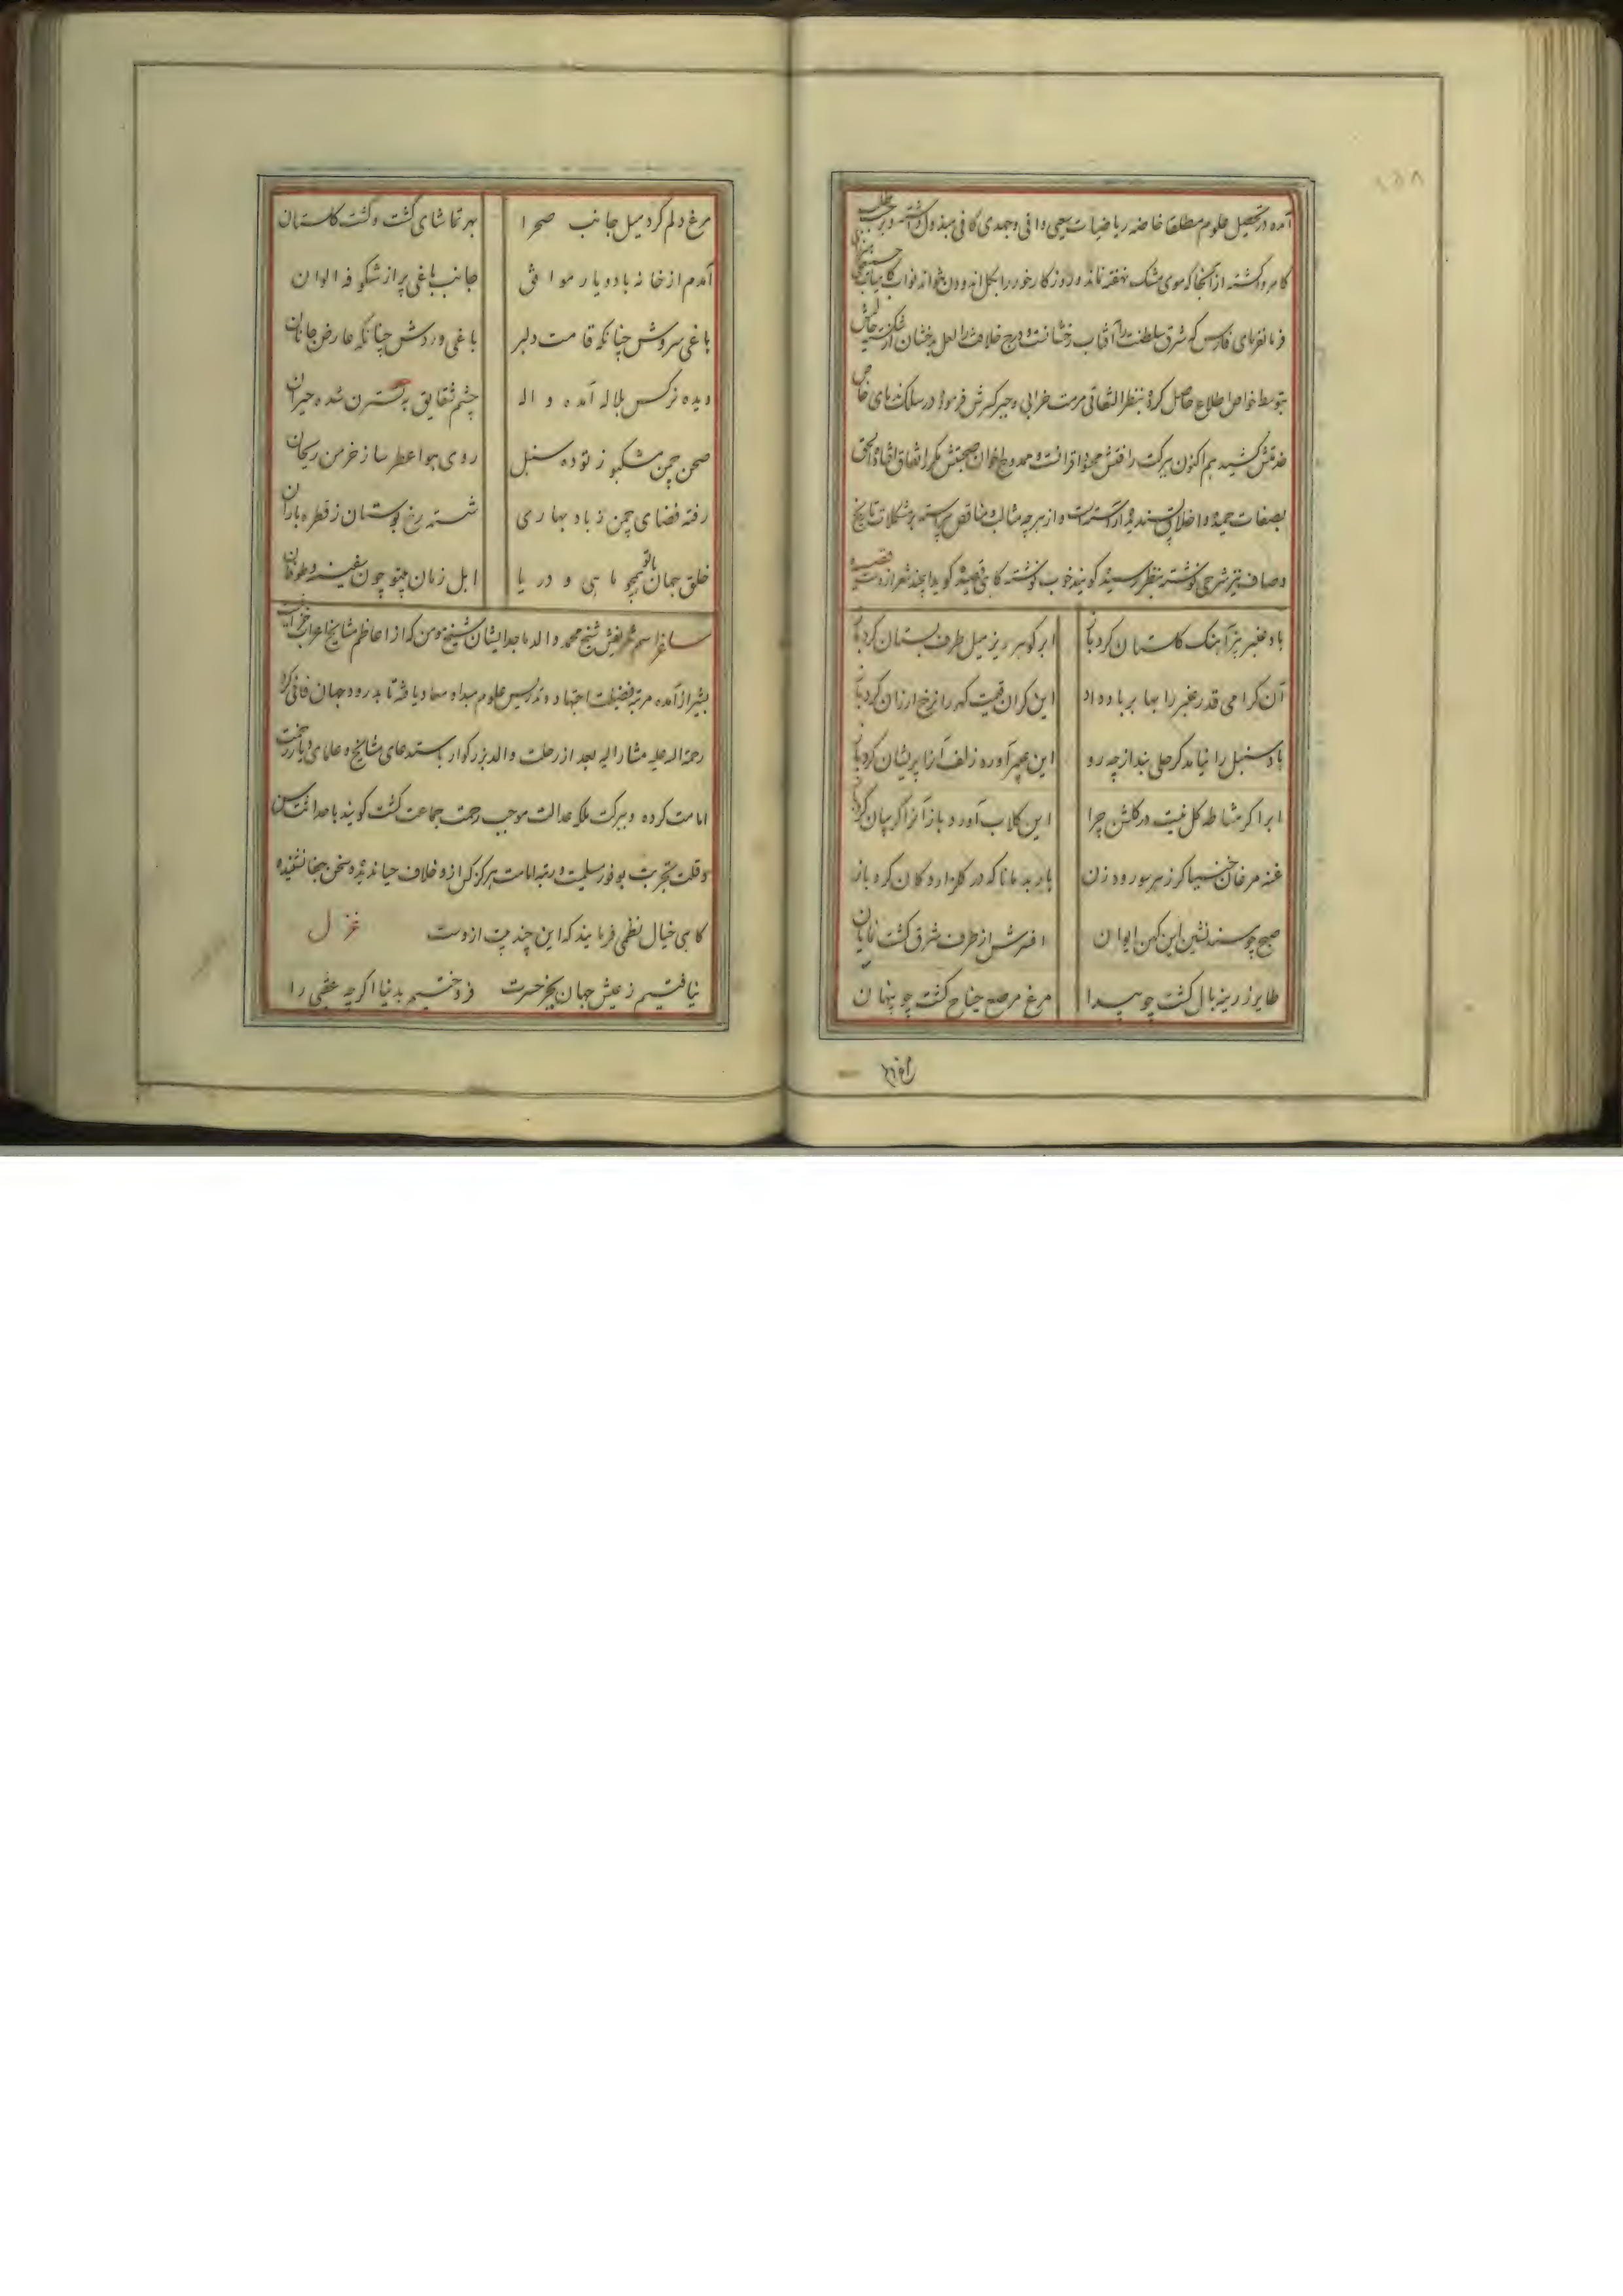 آمده در تحصیل علوم مطلقا خاصه ریاضیات سعیی وافی و جهدی کافی مبذول داشته و بر
کامروا گشته از آنجا که بوی مشک نهفته نماند و روز کار خور را بکل اندودن نتواند نواب کامیاب
فرمانفرمای فارس که شرق سلطنت را آفتاب رخشانست و درج خلافت را لعل بدخشان از
بتوسط خواص اطلاع حاصل کرده بنظر التفاتی مرمت خرابی و جبر کسرش فرموده در سلک
خدمتش کشیده هم اکنون ببرکت رافتش محسود اقرانست و ممدوح اخوان صحبتش مکرر اتفاق افتاده الحق
بصفات حمیده و اخلاق پسندیده آراسته است و از هر چه مثالب و مناقص پیراسته بر مشکلات تاریخ
وصاف نیز شرحی نوشته بنظر رسید گویند خوب نوشته گاهی قصیده گوید این چند شعر از وست قصیده
باد عنبر بیز آهنگ گلستان کرد باز ابر گوهر ریز میل طرف بستان کرد باز
آن گرامی قدر عنبر را بها بر باد داد این گران قیمت گهر را نرخ ارزان کرد باز
باد سنبل را نیامد گر حلی بند از چه رو این بچهر آورده زلف آنرا پریشان کرد باز
ابر اگر مشاطه گل نیست در گلشن چرا این گلاب آورد و باز آنرا گریبان کرد باز
غنه مرغان خنیاگر ز هر سو رود زن باربد مانا که در گلزار دکان کرده باز
صبح چو مسند نشین این کهن ایوان افسرش از طرف شرق گشت نمایان
طایر زرینه بال گشت چو پیدا مرغ مرصع جناح گشت چو پنهان
مرغ دلم کرد میل جانب صحرا بهر تماشای گشت و گشت گلستان
آمدم از خانه با دو یار موافق جانب باغی پر از شکوفه الوان
باغی سروش چنانکه قامت دلبر باغی وردش چنانکه عارض جانان
دیده نرگس بلاله آمده واله چشم شقایق به نسترن شده حیران
صحن چمن مشکبو ز توده سنبل روی هوا عطرسا ز خرمن ریحان
رفته فضای چمن ز باد بهاری شسته رخ بوستان ز قطره باران
خلق جهان با تو همچو ماهی و دریا اهل زمان بیتو چون سفینه و طوفان
ساغر اسم شریفش شیخ محمد والد ماجد ایشان شیخ مومن که از اعاظم مشایخ اعراب
بشیراز آمده مرتبه فضیلت اجتهاد و تدریس علوم مبدا و معاد یافته تا بدرود جهان فانی کرد
رحمة اله علیه مشار الیه بعد از رحلت والد بزرگوار باستدعای مشایخ و علمای دیار
امامت کرده و ببرکت ملکه عدالت موجب رحمت جماعت گشت گویند با حداثت سن
و قلت تجربت بوفور سلیمت و رتبه امامت هرگز کس از و خلاف حیا ندیده و سخن بیجا نشنیده
گاهی خیال نظمی فرمایند که این چند بیت از وست غزل
نیافتیم ز عیش جهان بجز حسرت فروختیم بدنیا اگر چه عقبی را